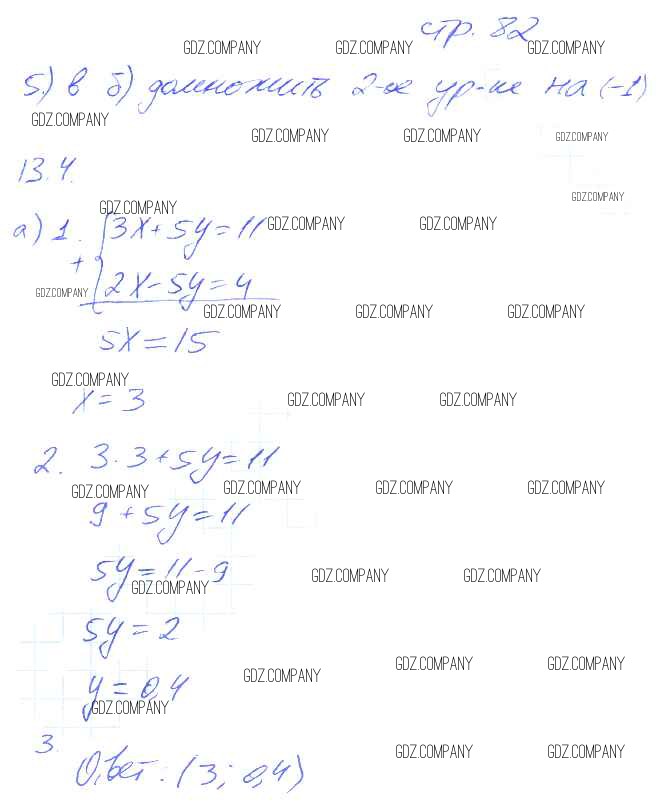 стр. 82
GDZ.COMPANY GDZ.COMPANY GDZ.COMPANY
5.) в б) домножить 2-ое ур-ие на (-1)
GDZ.COMPANY
GDZ.COMPANY GDZ.COMPANY GDZ.COMPANY
13.4.
GDZ.COMPANY
GDZ.COMPANY
а) 1. { 3x + 5y = 11
GDZ.COMPANY GDZ.COMPANY
+ { 2x - 5y = 4
GDZ.COMPANY
GDZ.COMPANY GDZ.COMPANY GDZ.COMPANY
5x = 15
GDZ.COMPANY
x = 3
GDZ.COMPANY GDZ.COMPANY
2. 3·3 + 5y = 11
GDZ.COMPANY GDZ.COMPANY GDZ.COMPANY GDZ.COMPANY
9 + 5y = 11
5y = 11 - 9
GDZ.COMPANY GDZ.COMPANY GDZ.COMPANY
5y = 2
GDZ.COMPANY GDZ.COMPANY GDZ.COMPANY
y = 0,4
GDZ.COMPANY
3.
GDZ.COMPANY GDZ.COMPANY
Ответ: (3; 0,4)